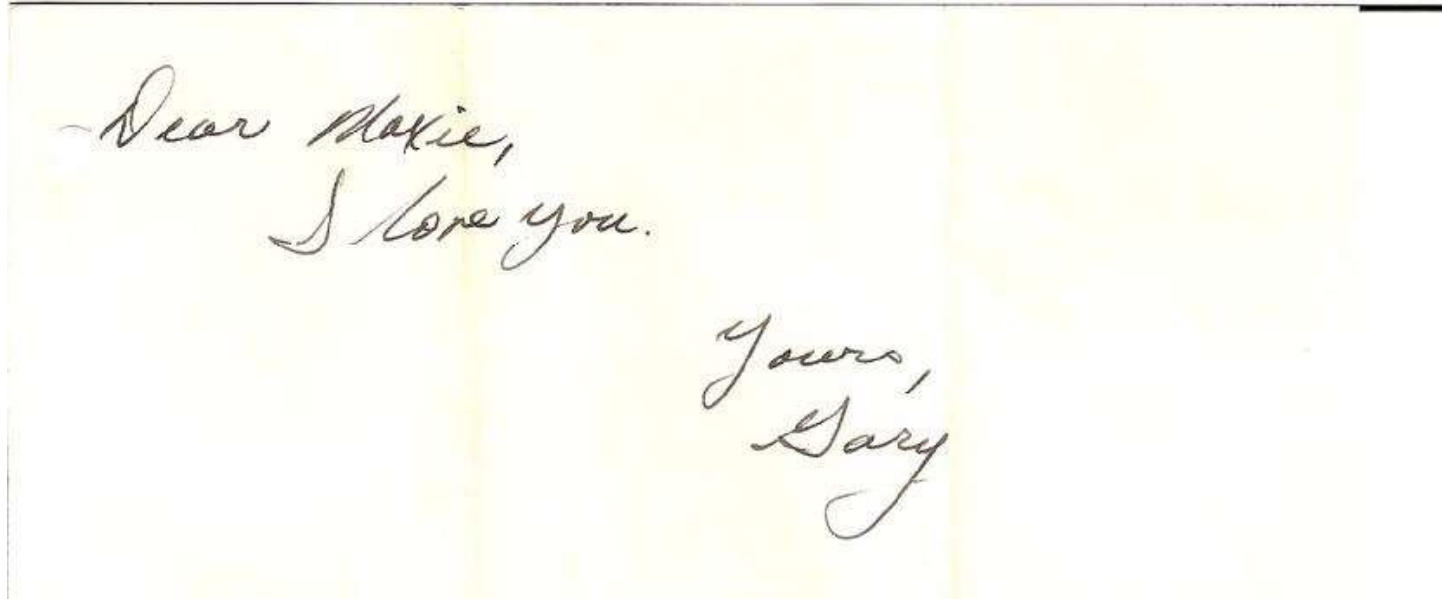 Dear Moxie,
I love you.
Yours,
Gary